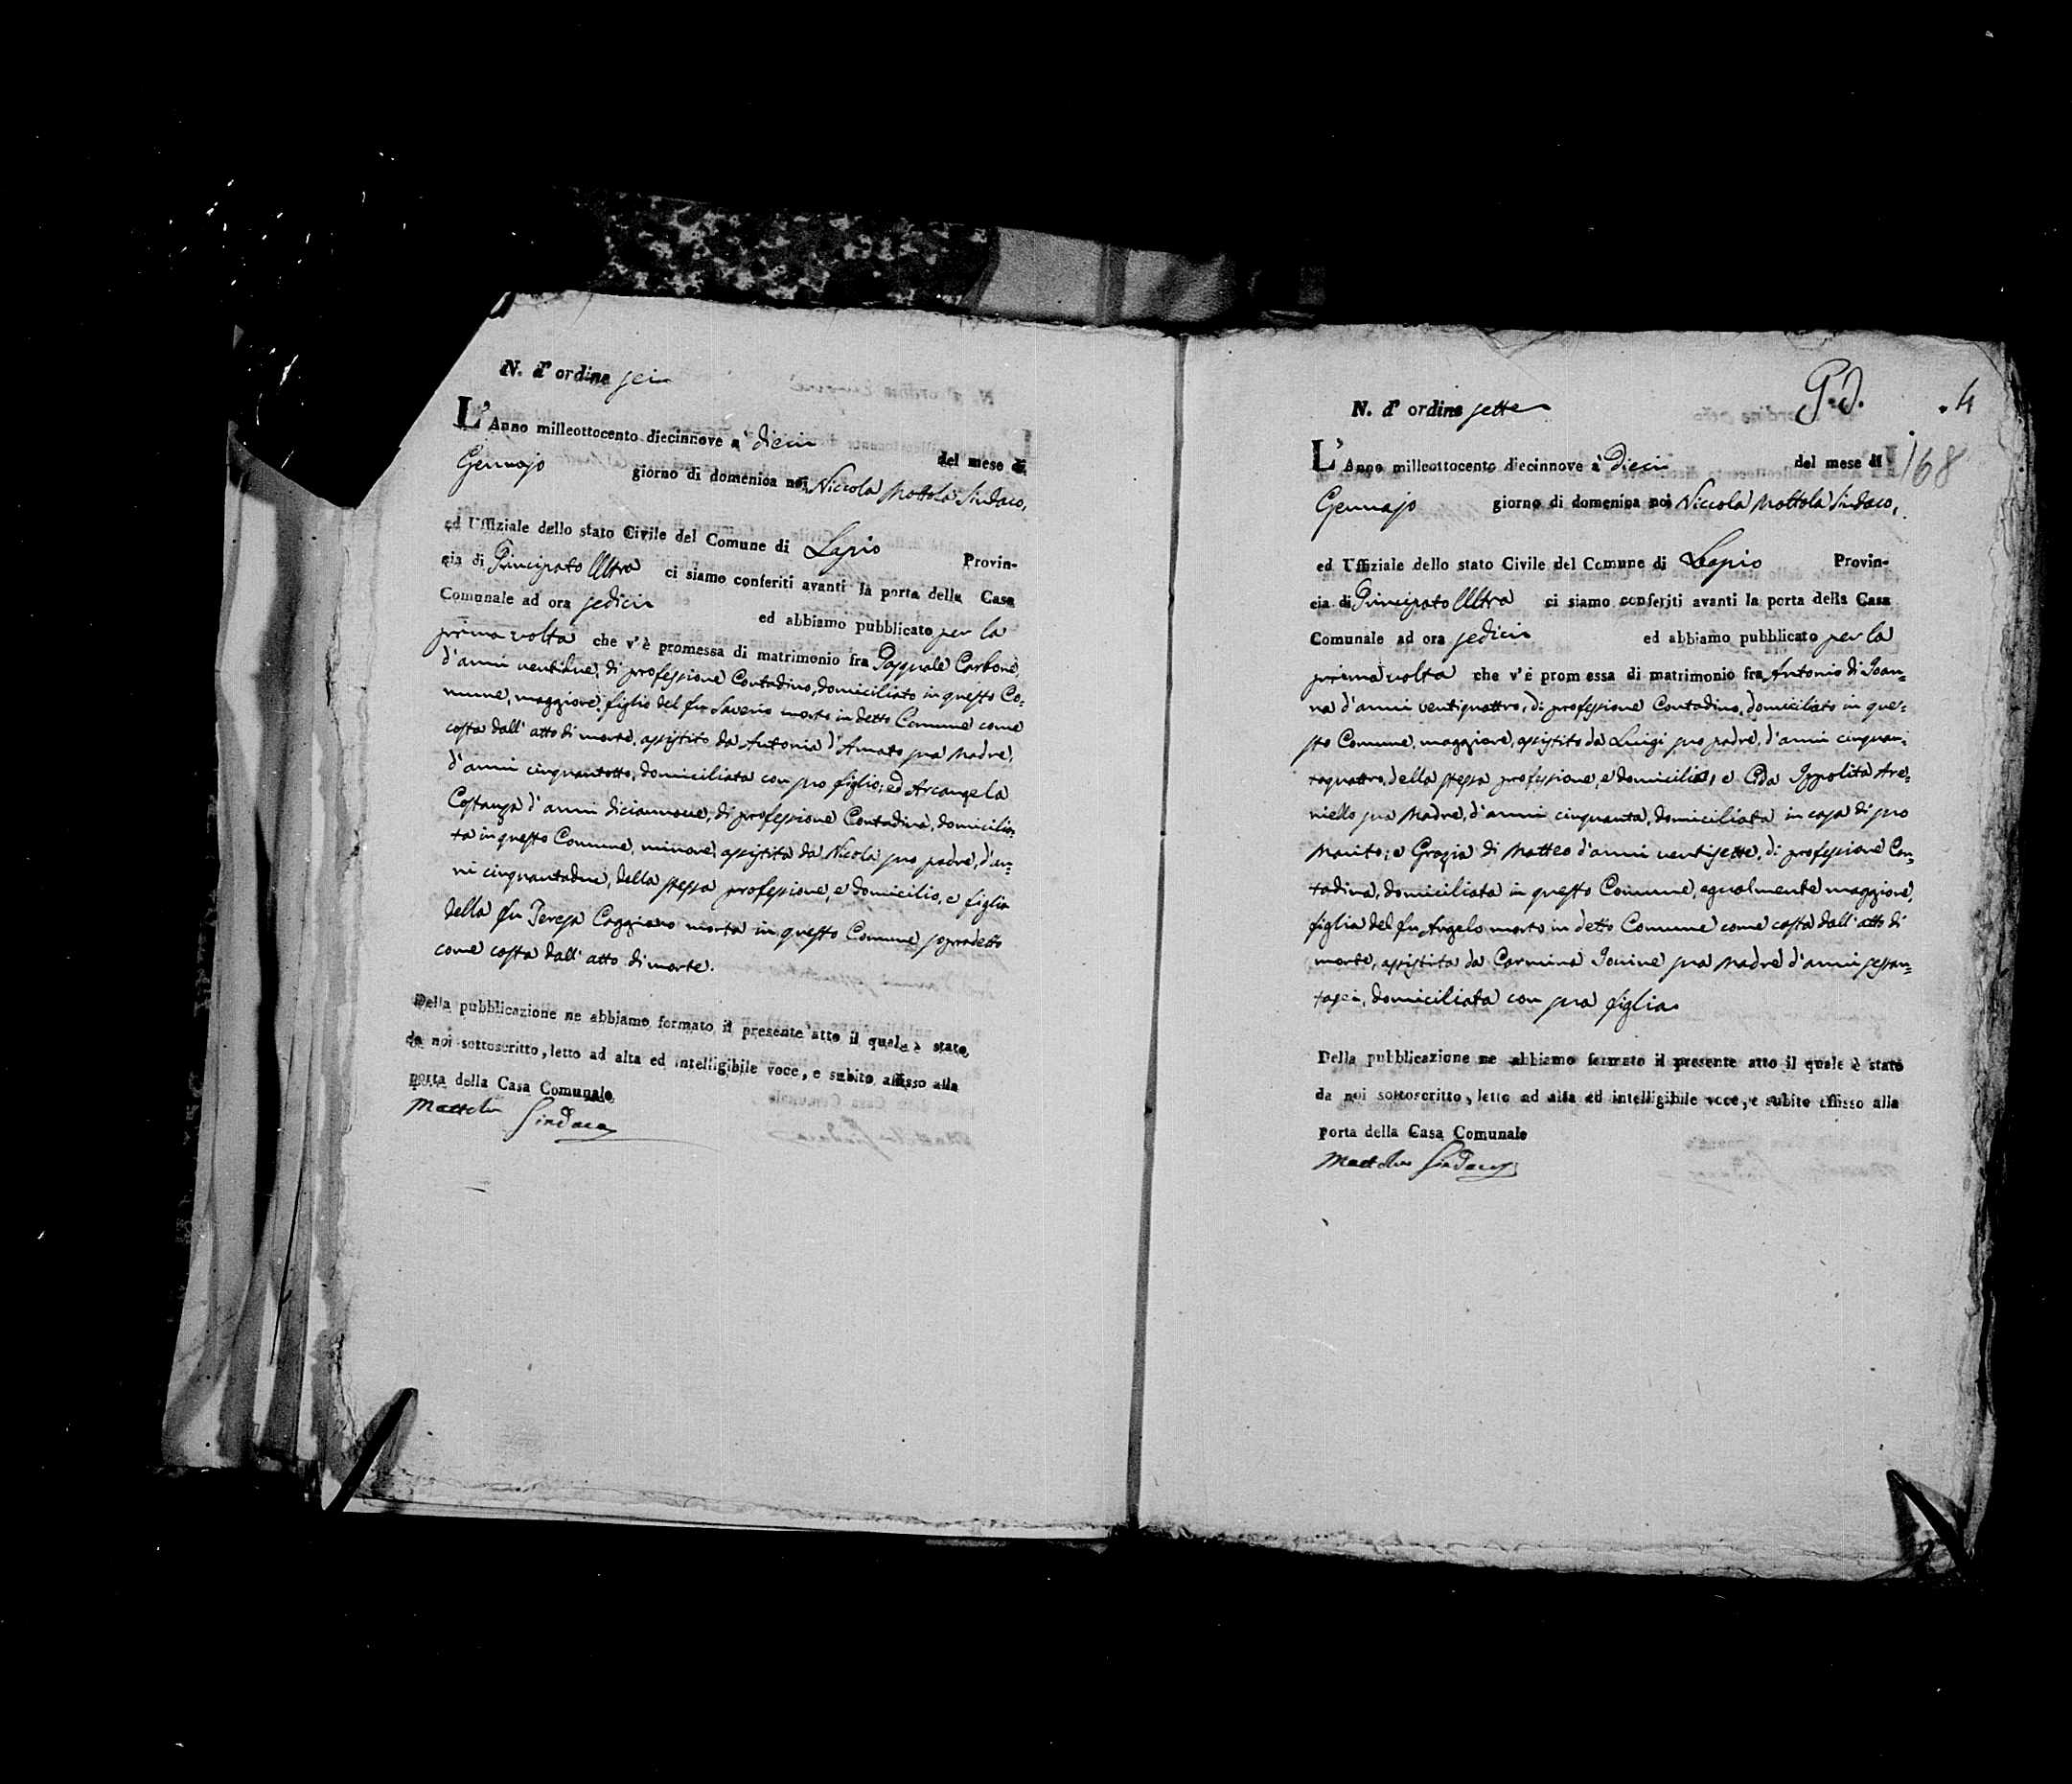 N. d' ordine sei
L' Anno milleottocento diecinnove a' dieci del mese di
Gennajo giorno di domenica noi Niccola Mottola Sindaco,
ed Uffiziale dello stato Civile del Comune di Lapio Provin-
cia di Principato Ultra ci siamo conferiti avanti la porta della Casa
Comunale ad ora sedici ed abbiamo pubblicato per la
prima volta che v'è promessa di matrimonio fra Pasquale Carbone
d'anni ventidue, di professione Contadino, domiciliato in questo Co=
mune, maggiore, figlio del fu Saverio morto in detto Comune come
costa dall' atto di morte, assistito da Antonia d'Amato sua Madre,
d'anni cinquantotto, domiciliata con suo figlio; ed Arcangela
Costanza d'anni diciannove, di professione Contadina, domicilia=
ta in questo Comune, minore, assistita da Nicola suo padre, d'an=
ni cinquantadue, della stessa professione, e domicilio, e figlia
della fu Teresa Caggiano morta in questo Comune sopradetto
come costa dall' atto di morte.
Della pubblicazione ne abbiamo formato il presente atto il quale è stato
da noi sottoscritto, letto ad alta ed intelligibile voce, e subito affisso alla
porta della Casa Comunale
Mottola Sindaco
P. J. . 4
N. d' ordine sette
168
L' Anno milleottocento diecinnove a' dieci del mese di
Gennajo giorno di domenica noi Niccola Mottola Sindaco,
ed Uffiziale dello stato Civile del Comune di Lapio Provin-
cia di Principato Ultra ci siamo conferiti avanti la porta della Casa
Comunale ad ora sedici ed abbiamo pubblicato per la
prima volta che v'è promessa di matrimonio fra Antonio di Joan=
na d'anni ventiquattro, di professione Contadino, domiciliato in que=
sto Comune, maggiore, assistito da Luigi suo padre, d'anni cinquan=
taquattro, della stessa professione, e domicilio, e Ippolita Are=
niello sua Madre, d'anni cinquanta, domiciliata in casa di suo
Marito; e Grazia di Matteo d'anni ventisette, di professione Con=
tadina, domiciliata in questo Comune, egualmente maggiore,
figlia del fu Angelo morto in detto Comune come costa dall' atto di
morte, assistita da Carmina Jonine sua Madre d'anni sessan=
tasei, domiciliata con sua figlia.
Della pubblicazione ne abbiamo formato il presente atto il quale è stato
da noi sottoscritto, letto ad alta ed intelligibile voce, e subito affisso alla
porta della Casa Comunale
Mottola Sindaco